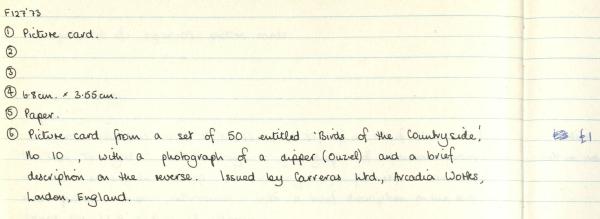 F127'73
① Picture card.
②
③
④ 6.8cm. x 3.55cm.
⑤ Paper.
⑥ Picture card from a set of 50 entitled 'Birds of the Countryside',
No 10, with a photograph of a dipper (Ouzel) and a brief
description on the reverse. Issued by Carreras Ltd., Arcadia Works,
London, England.
£1